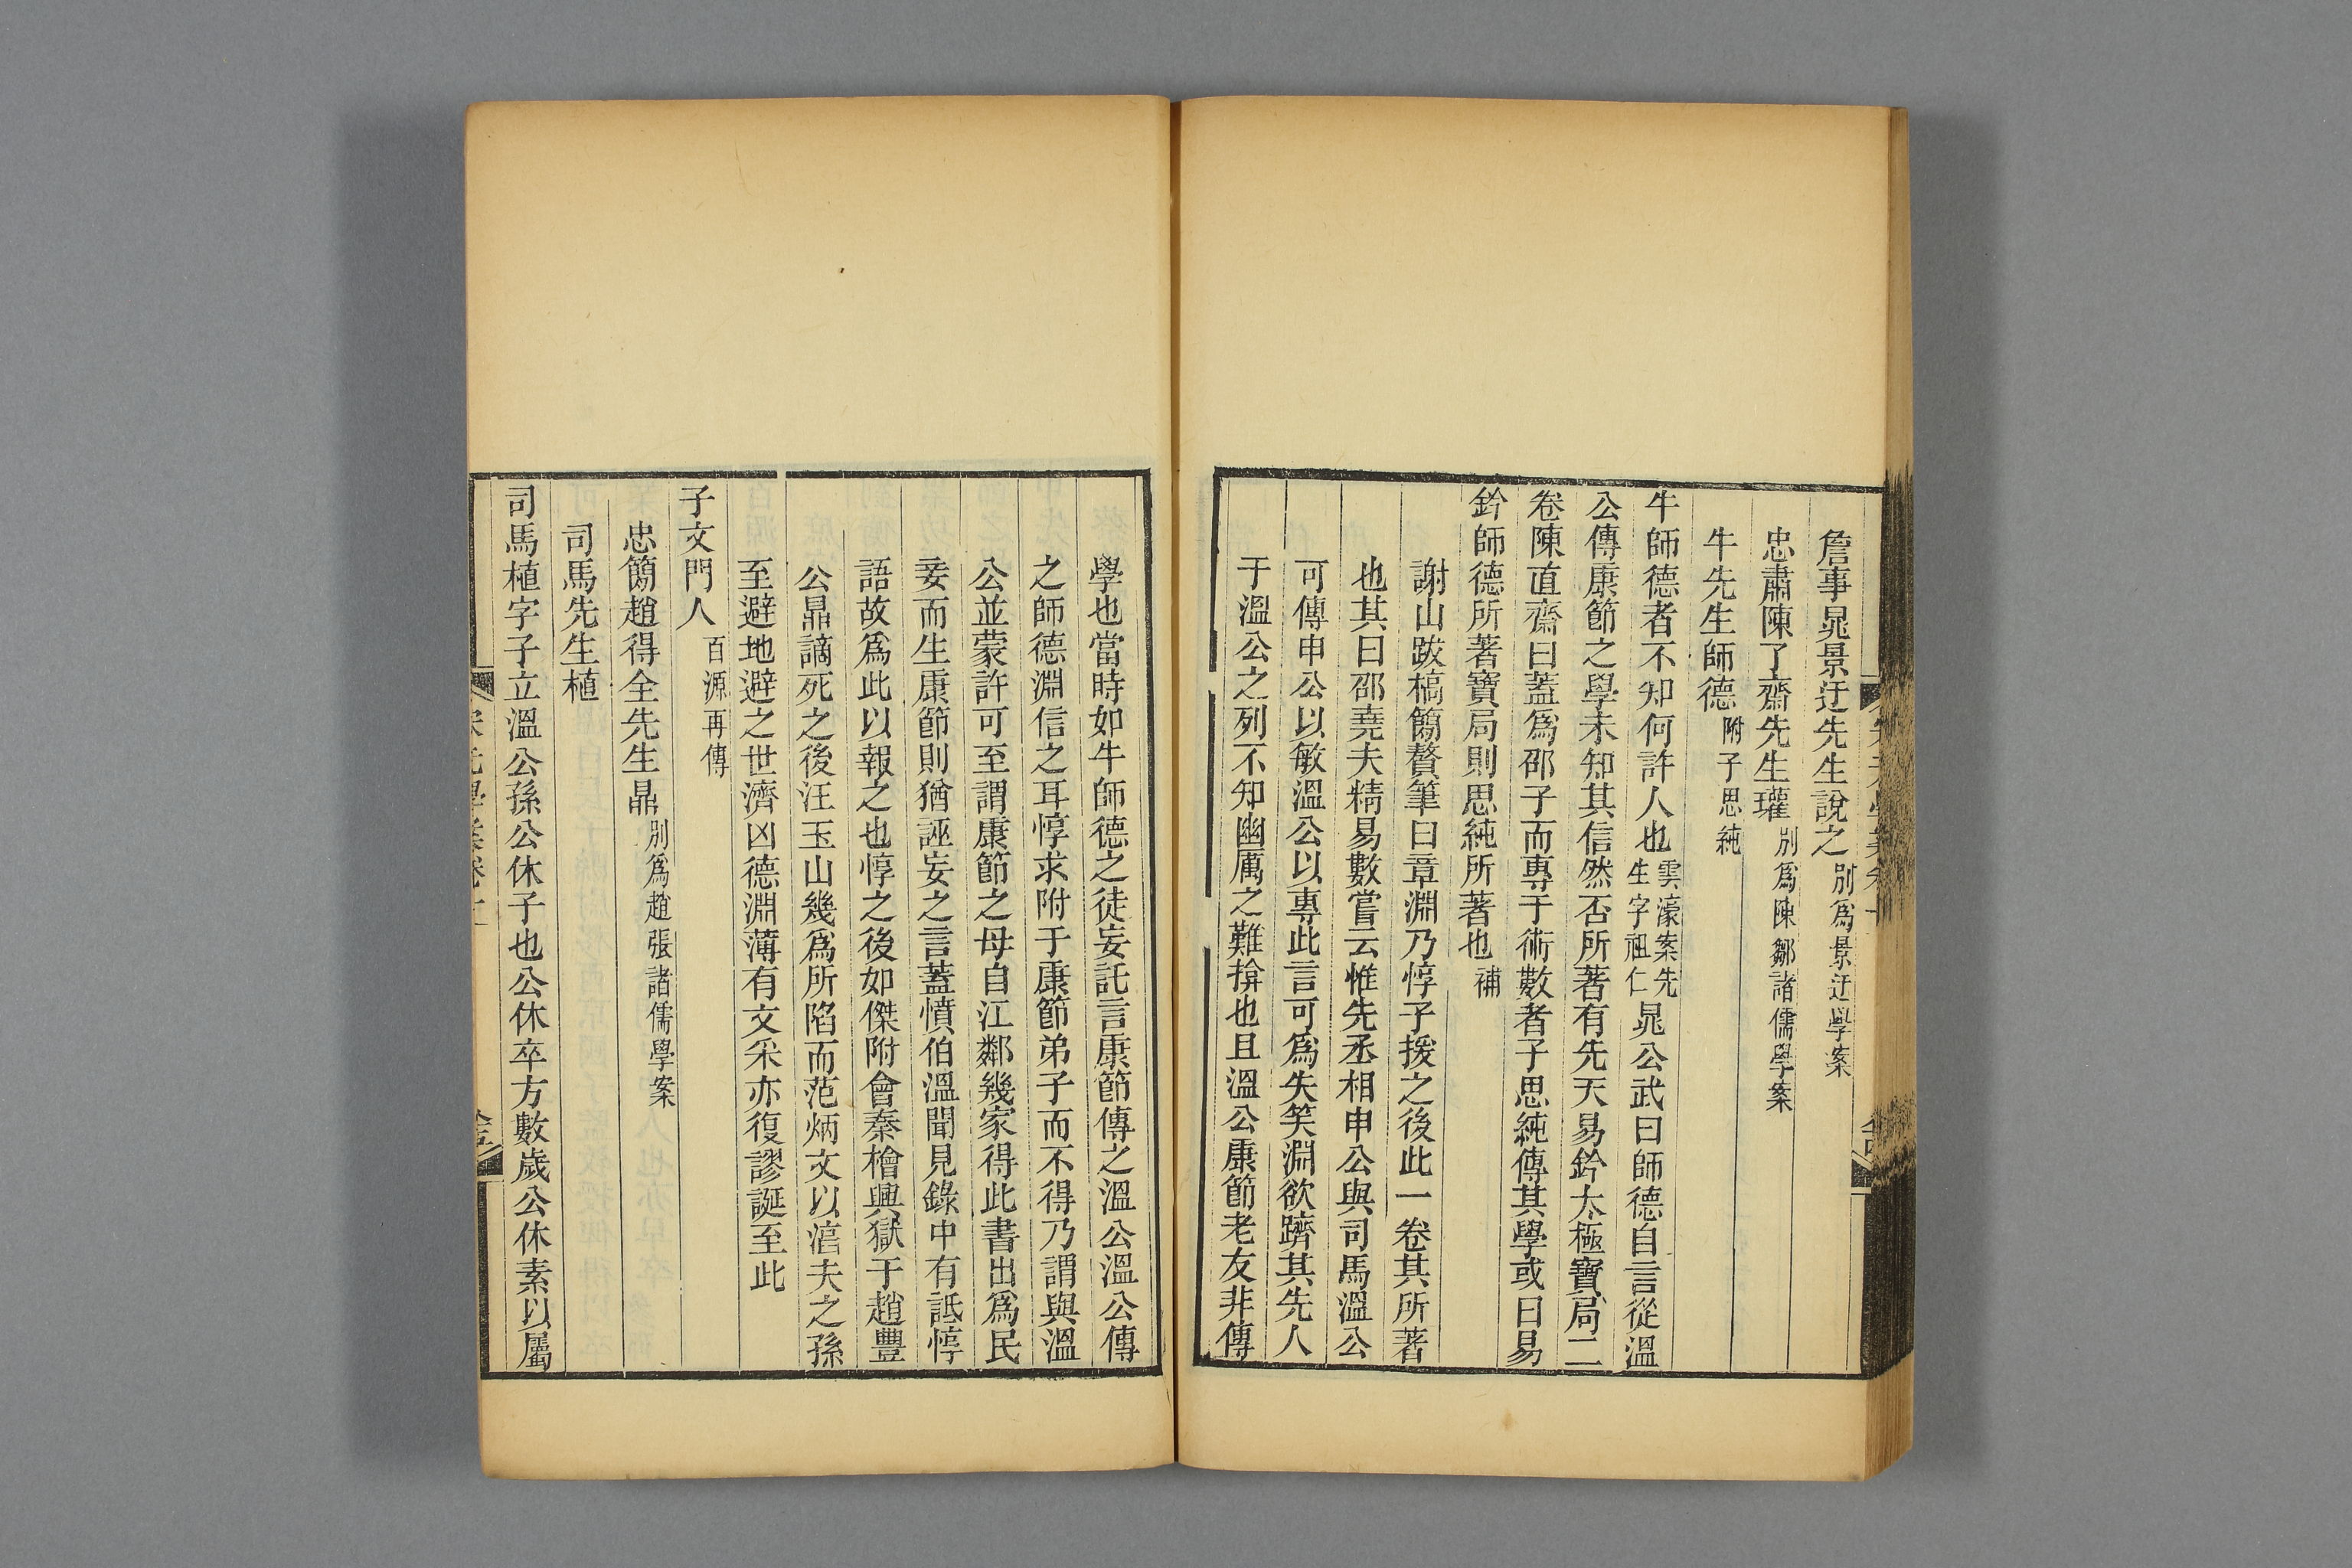 詹事晁景迂先生說之別爲景迂學案
忠肅陳了齋先生瓘別爲陳鄒諸儒學案
牛先生師德附子思純
牛師德者不知何許人也雲濠案先生字祖仁晁公武曰師德自言從溫
公傳康節之學未知其信然否所著有先天易鈐太極寶局二
卷陳直齋曰蓋爲邵子而專于術數者子思純傳其學或曰易
鈐師德所著寶局則思純所著也補
謝山跋槁簡贅筆曰章淵乃惇子援之後此一卷其所著
也其曰邵堯夫精易數嘗云惟先丞相申公與司馬溫公
可傳申公以敏溫公以專此言可爲失笑淵欲躋其先人
于溫公之列不知幽厲之難揜也且溫公康節老友非傳
學也當時如牛師德之徒妄託言康節傳之溫公溫公傳
之師德淵信之耳惇求附于康節弟子而不得乃謂與溫
公並蒙許可至謂康節之母自江鄰幾家得此書出爲民
妾而生康節則猶誣妄之言蓋憤伯溫聞見錄中有詆惇
語故爲此以報之也惇之後如傑附會秦檜興獄于趙豐
公鼎謫死之後汪玉山幾爲所陷而范炳文以㵒夫之孫
至避地避之世濟凶德淵薄有文采亦復謬誕至此
子文門人百源再傳
忠簡趙得全先生鼎別爲趙張諸儒學案
司馬先生植
司馬植字子立溫公孫公休子也公休卒方數歲公休素以屬